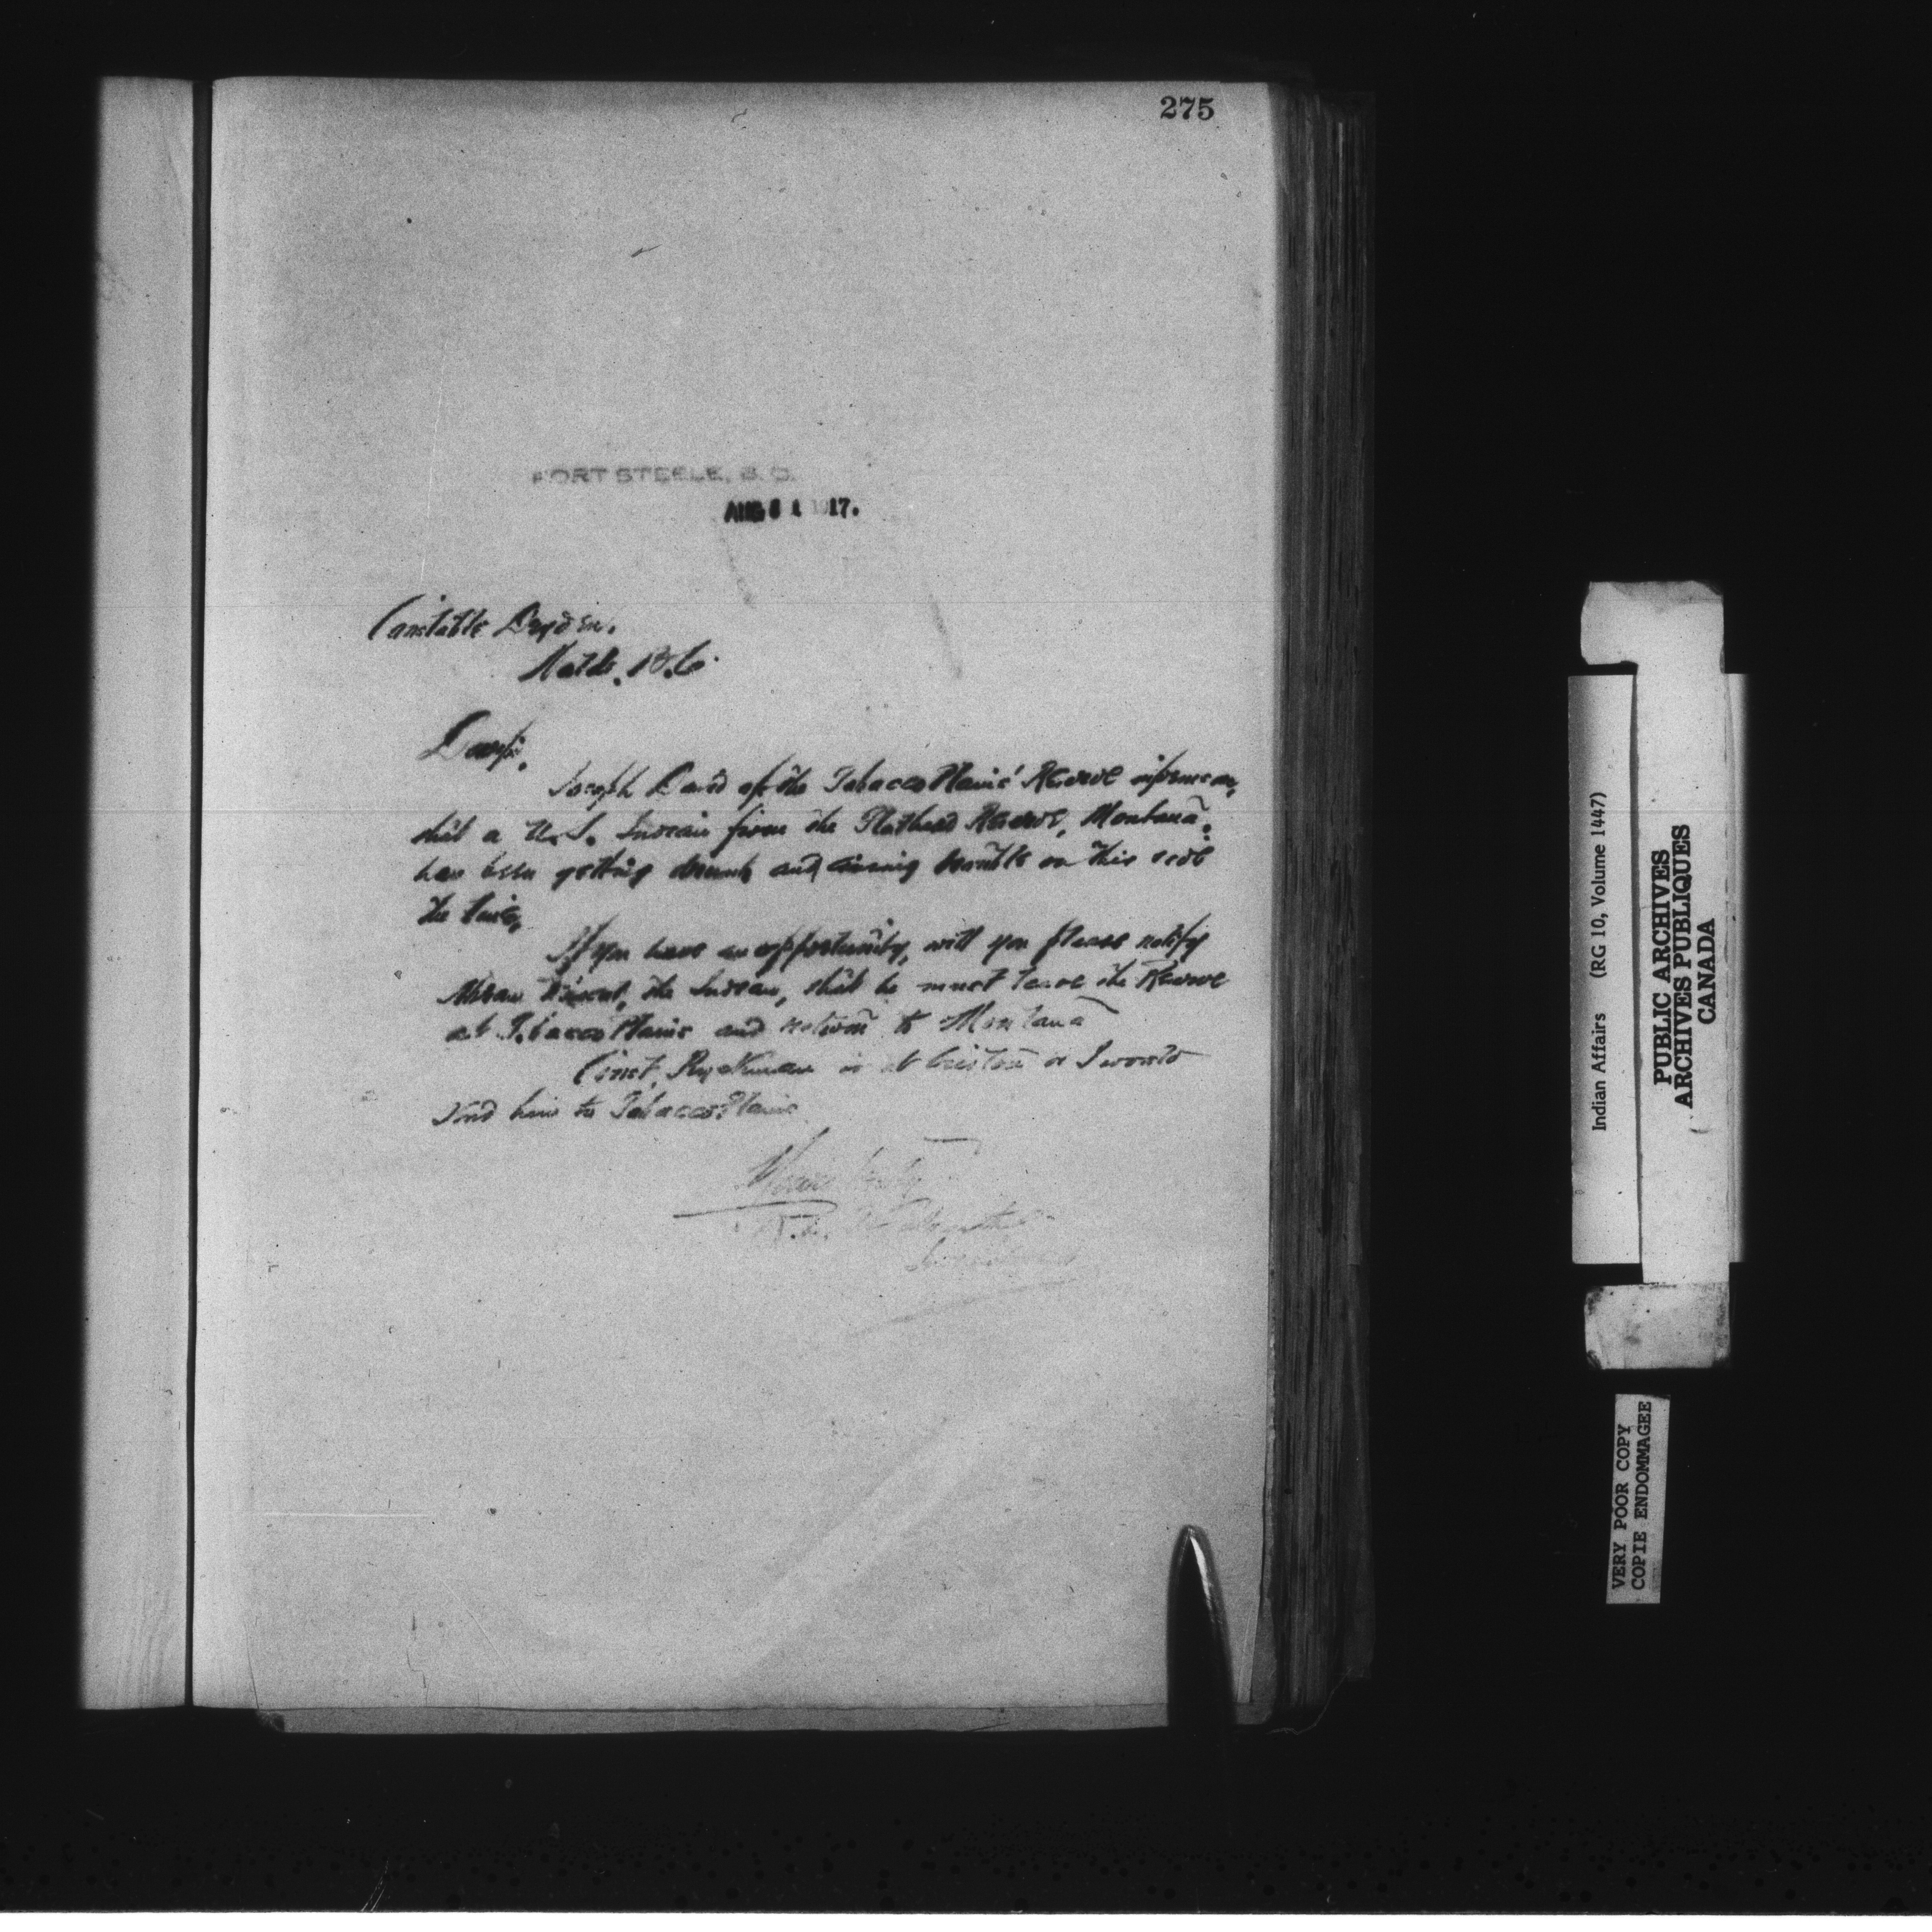 275
FORT STEELE, B. C.
AUG 31 1917.
Constable Dryden.
B.C.
Joseph David of the Tobacco Plains' Reserve informs me,
that a U.S. Indian from the Flathead Reserve, Montana,
has been getting drunk and causing trouble on this side
the line.
If you have an opportunity, will you please notify
the Indian, that he must leave the Reserve
at Tobacco Plains and return to Montana
Const. Ryckman is at Creston or I would
send him to Tobacco Plains
Yours truly
Indian Affairs (RG 10, Volume 1447)
PUBLIC ARCHIVES
ARCHIVES PUBLIQUES
CANADA
VERY POOR COPY
COPIE ENDOMMAGEE